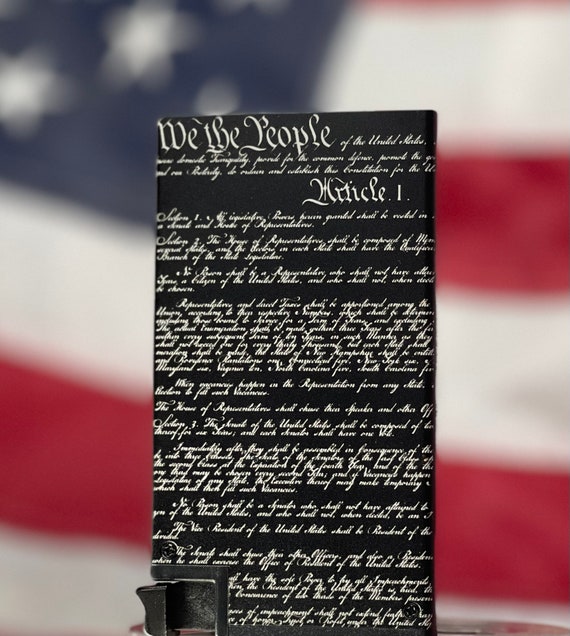 We the People of the United States,
domestic Tranquility, provide for the common defence, promote the
and our Posterity, do ordain and establish this Constitution for the U
Article. I.
Section. 1. All legislative Powers herein granted shall be vested in
a Senate and House of Representatives.
Section. 2. The House of Representatives shall be composed of Mem
several States, and the Electors in each State shall have the Qualifica
Branch of the State Legislature.
No Person shall be a Representative who shall not have attain
Years a Citizen of the United States, and who shall not, when elected
be chosen.
Representatives and direct Taxes shall be apportioned among the
Union, according to their respective Numbers, which shall be determin
including those bound to Service for a Term of Years, and excluding
The actual Enumeration shall be made within three Years after the
within every subsequent Term of ten Years, in such Manner as they
shall not exceed one for every thirty Thousand, but each State shall
meration shall be made, the State of New Hampshire shall be entitl
Providence Plantations one, Connecticut five, New-York six,
Maryland six, Virginia ten, North Carolina five, South Carolina
When vacancies happen in the Representation from any State,
Election to fill such Vacancies.
The House of Representatives shall chuse their Speaker and other Off
Section. 3. The Senate of the United States shall be composed of two
thereof for six Years; and each Senator shall have one Vote.
Immediately after they shall be assembled in Consequence of the
into three Classes. The Seats of the Senators of the first Class
the second Class at the Expiration of the fourth Year, and of the thi
one third may be chosen every second Year; and if Vacancies happen
Legislature of any State, the Executive thereof may make temporary
which shall then fill such Vacancies.
No Person shall be a Senator who shall not have attained to
Years of the United States, and who shall not, when elected, be an
The Vice President of the United States shall be President of the
divided.
The Senate shall chuse their other Officers, and also a President
when he shall exercise the Office of President of the United States.
shall have the sole Power to try all Impeachments.
When the President of the United States is tried, the
Concurrence of two thirds of the Members present
Cases of Impeachment shall not extend further
of honor, Trust or Profit under the United